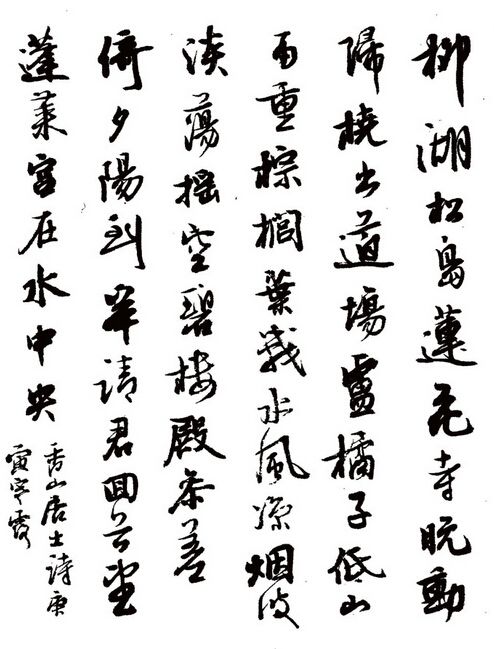 柳湖松島蓮花寺晚動
歸橈出道場盧橘子低山
雨重棕榈葉戰水風涼烟波
淡蕩摇空碧樓殿參差
倚夕陽到岸請君回首望
蓬萊宫在水中央
香山居士詩庚
寅寒露